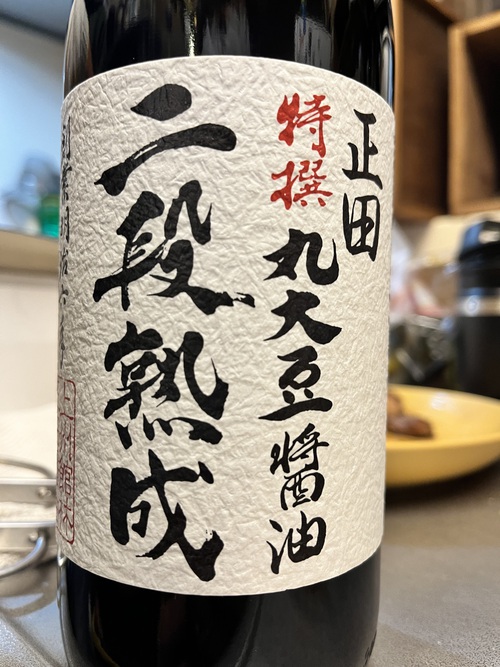 正田
特撰
丸大豆醤油
二段熟成